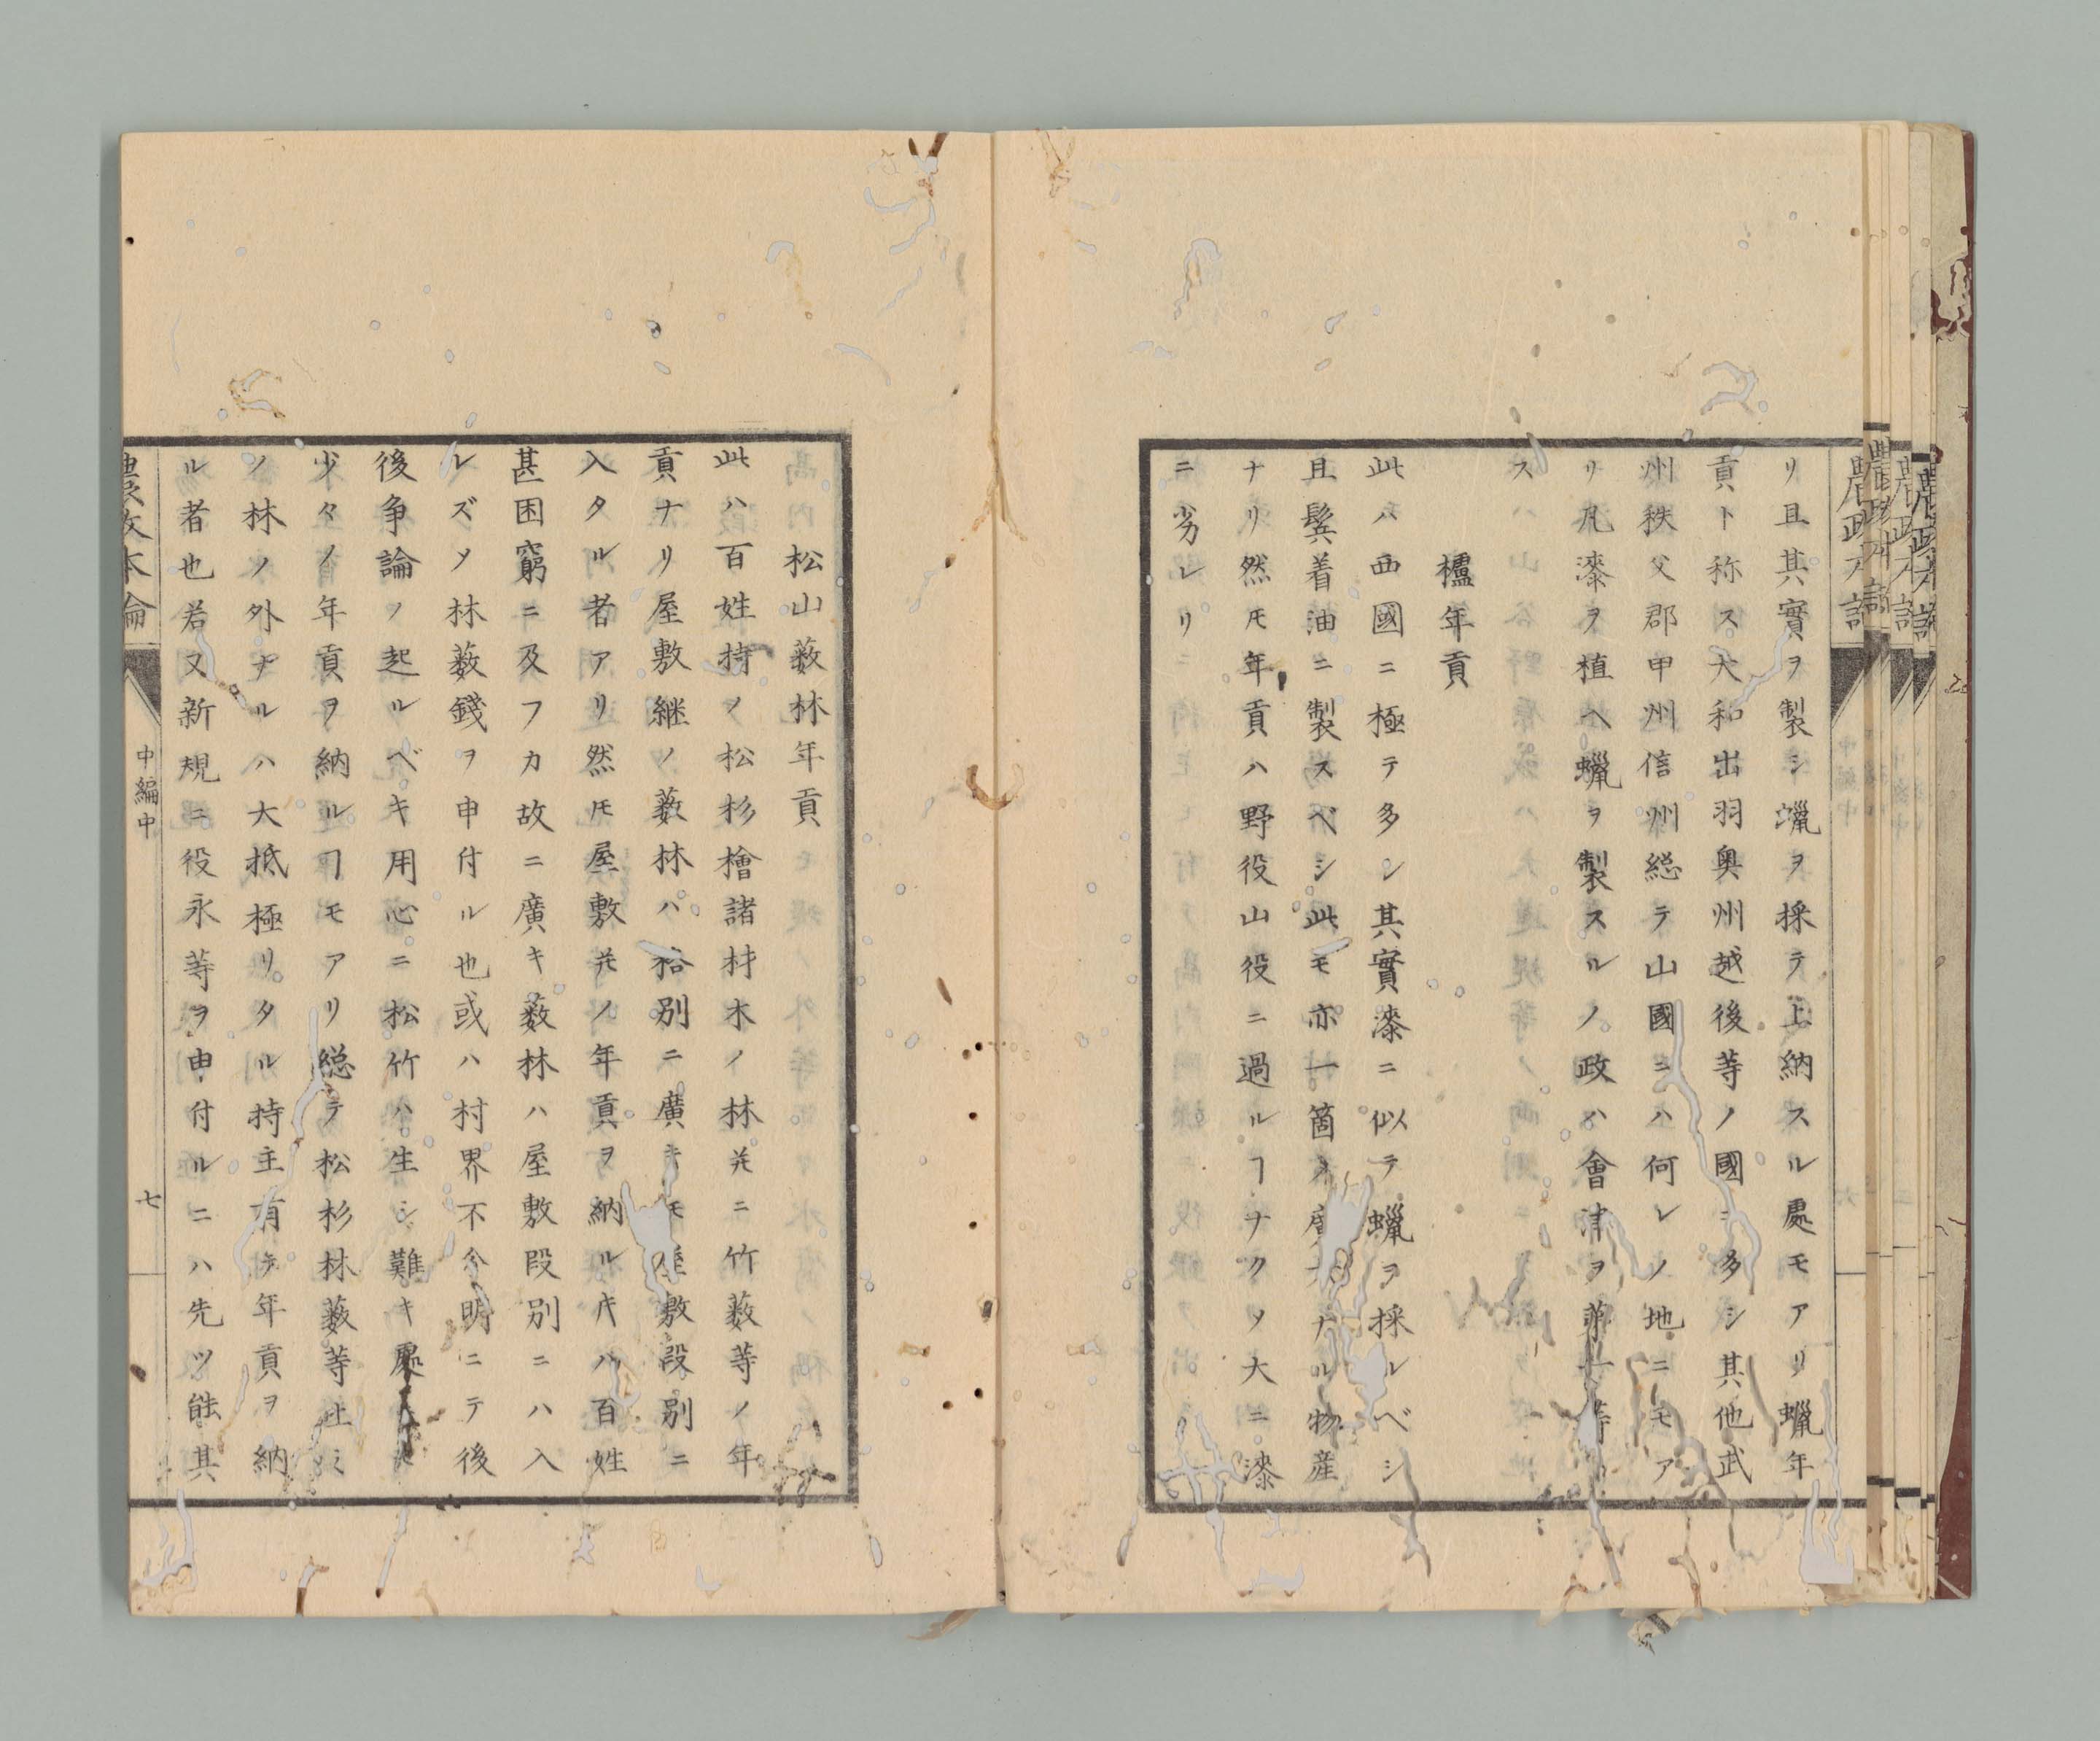 リ且其實ヲ製シ蠟ヲ採テ上納スル處モアリ蠟年
貢ト称ス大和出羽奥州越後等ノ國ニ多シ其他武
州秩父郡甲州信州総テ山國ニハ何レノ地ニモア
リ凡漆ヲ植ヘ蠟ヲ製スルノ政ハ會津ヲ第一等ト
ス
櫨年貢
此ハ西國ニ極テ多シ其實漆ニ似テ蠟ヲ採ルベシ
且鬂着油ニ製スベシ此モ亦一箇ノ廣大ナル物産
ナリ然𪜈年貢ハ野役山役ニ過ルヿナクメ大ニ漆
ニ劣レリ
松山薮林年貢
此ハ百姓持ノ松杉檜諸材木ノ林并ニ竹薮等ノ年
貢ナリ屋敷継ノ薮林ハ格別ニ廣キモ屋敷段別ニ
入タル者アリ然𪜈屋敷并ノ年貢ヲ納ルキハ百姓
甚困窮ニ及フカ故ニ廣キ薮林ハ屋敷段別ニハ入
レズメ林薮錢ヲ申付ル也或ハ村界不分明ニテ後
後争論ノ起ルベキ用心ニ松竹ハ生シ難キ處
少々ノ年貢ヲ納ルヿモアリ総テ松杉林薮等
ノ林ノ外ナルハ大抵極リタル持主有テ年貢ヲ納
ル者也若又新規ニ役永等ヲ申付ルニハ先ツ能其
農政本論
中編中
七